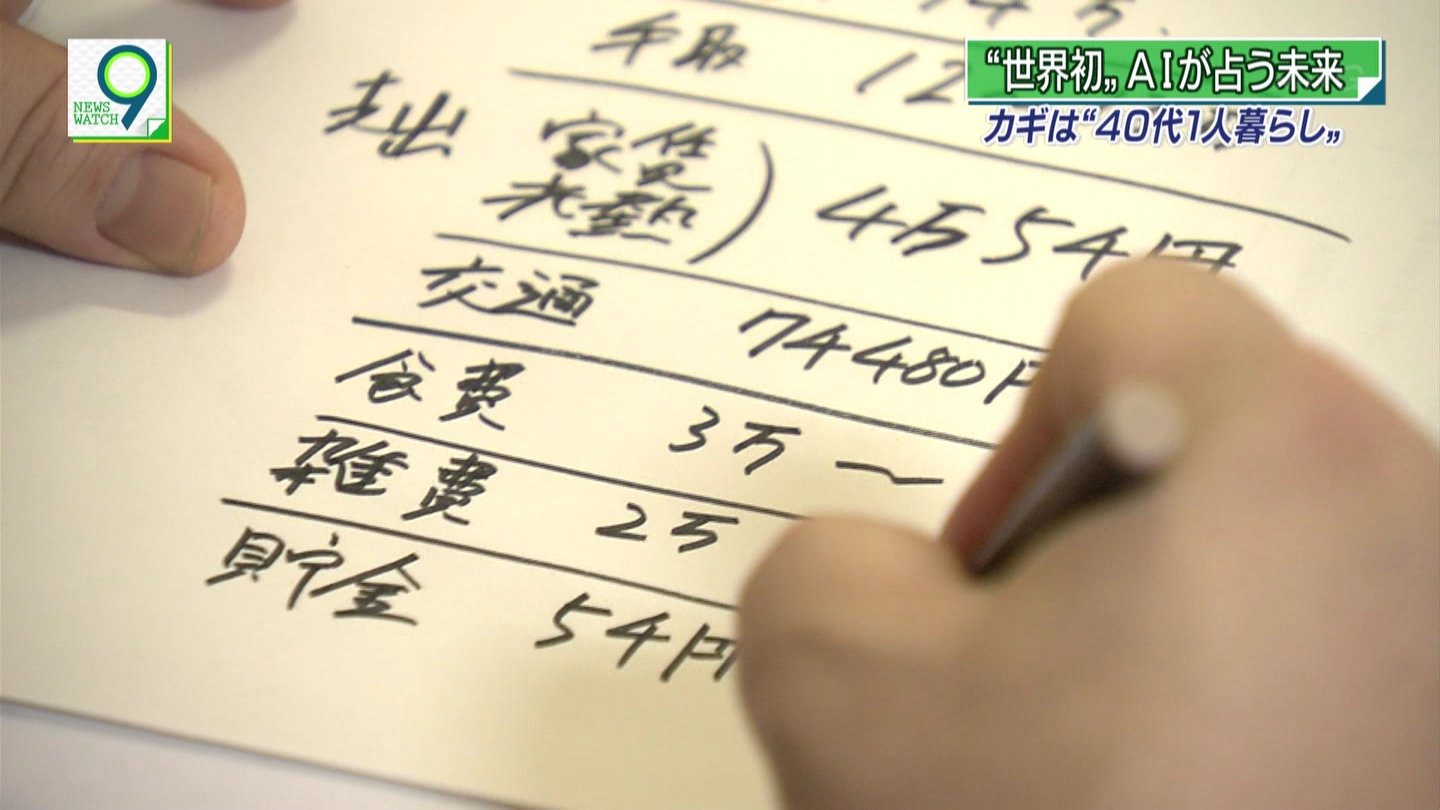 NEWS
WATCH 9
“世界初„ AIが占う未来
カギは“40代1人暮らし„
手取 12
支出 家賃
光熱) 4万54円
交通 74480円
食費 3万～
雑費 2万
貯金 54円